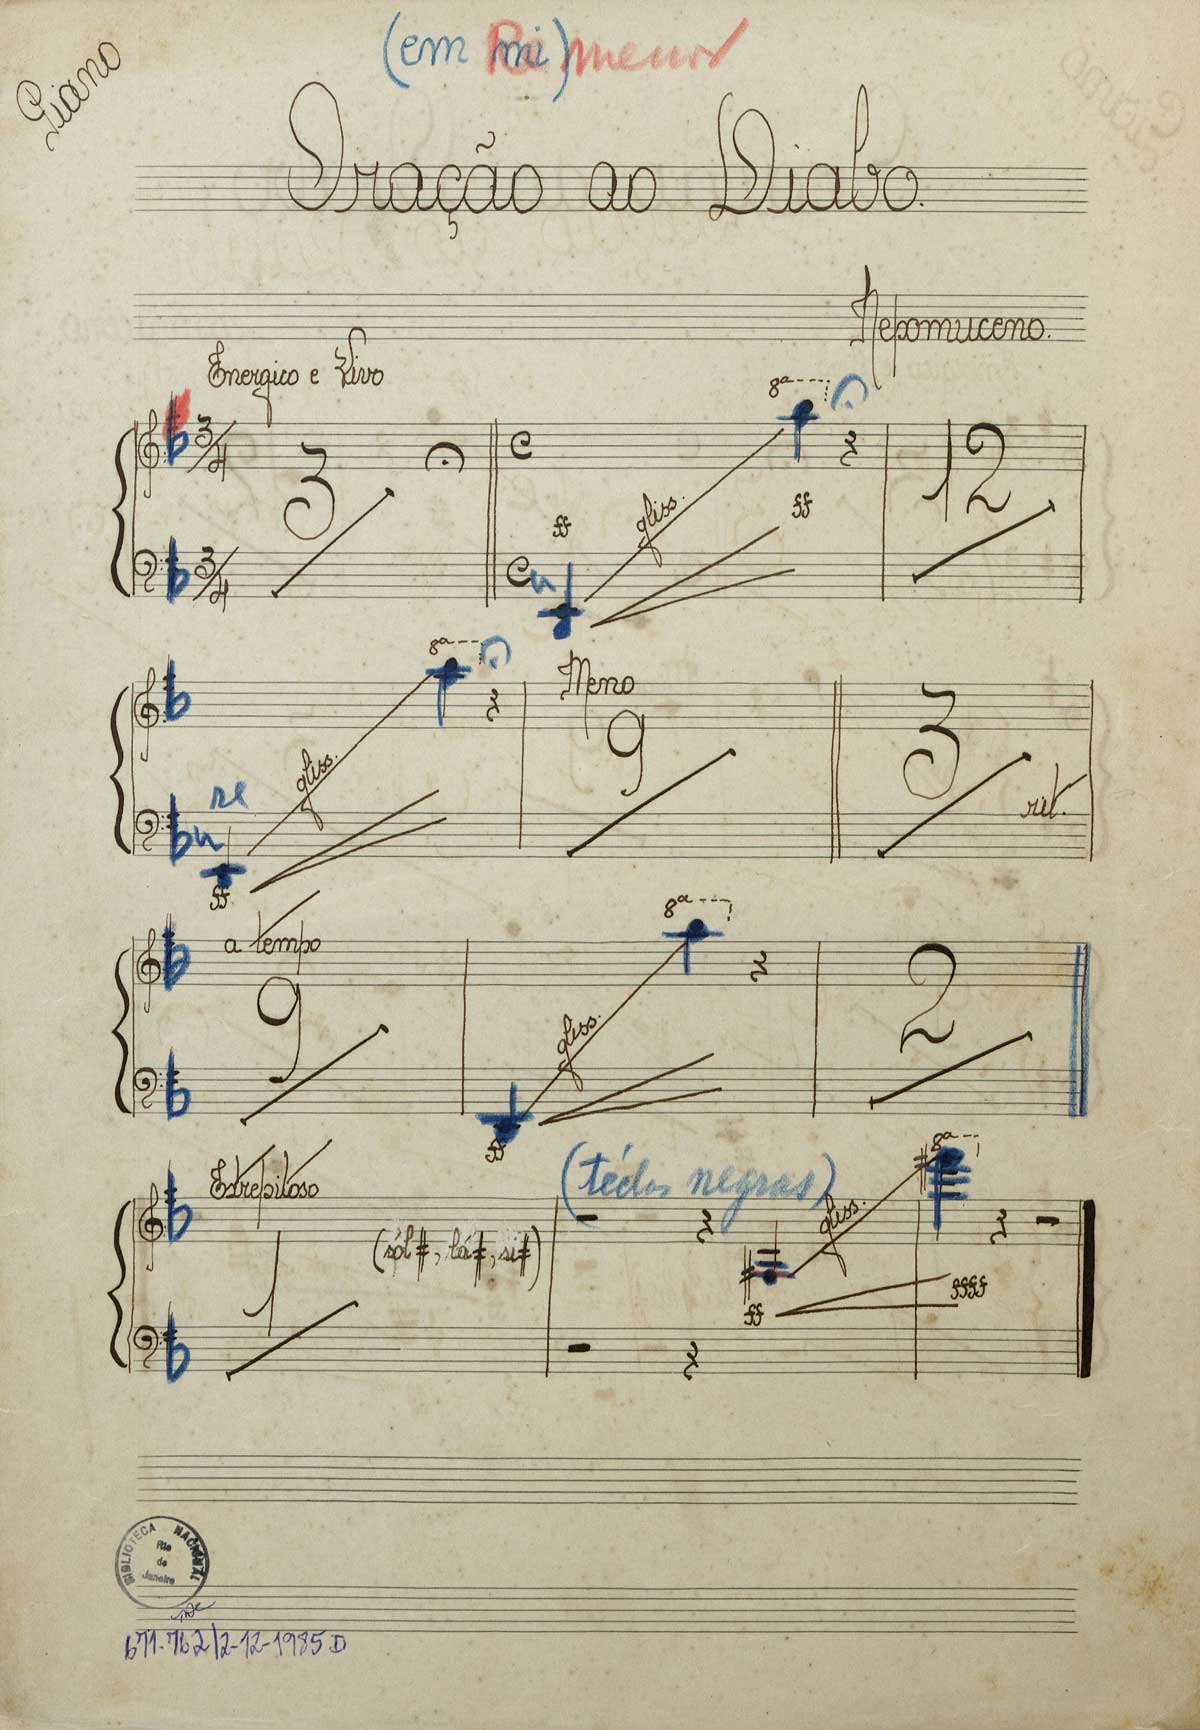 Piano
(em mi) Ré menor
Oração ao Diabo.
Nepomuceno.
Energico e Vivo
3/4 3 C 8ª 12
3/4 C ff gliss. ff
8ª
Meno
re ff gliss. 9 3 rit.
a tempo
9 ff gliss. 8ª 2
Estrepitoso
1 (sól#, lá#, si#)
(téclas negras)
ff gliss. 8ª ffff
BIBLIOTECA NACIONAL
Rio
de
Janeiro
671.762/2-12-1985 D